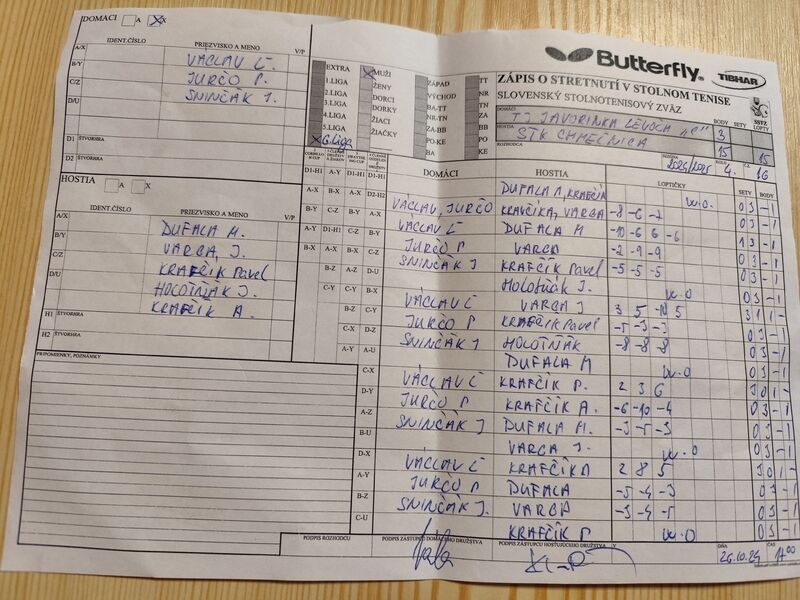 DOMÁCI A X
IDENT.ČÍSLO PRIEZVISKO A MENO V/P
A/X VÁCLAV Ľ
B/Y JURČO P.
C/Z SNINČÁK J.
D/U
D1 ŠTVORHRA
D2
HOSTIA A X
IDENT.ČÍSLO PRIEZVISKO A MENO V/P
A/X DUFALA M.
B/Y VARGA, J.
C/Z KRAFČÍK Pavel
D/U HOLOTŇÁK J.
KRAFČÍK A.
H1 ŠTVORHRA
H2
PRIPOMIENKY, POZNÁMKY
EXTRA MUŽI ZÁPAD TT
1.LIGA ŽENY VÝCHOD NR
2.LIGA DORCI BA-TT TN
3.LIGA DORKY NR-TN ZA
4.LIGA ŽIACI ZA-BB BB
5.LIGA ŽIAČKY PO-KE PO
6.liga BA KE
Butterfly TIBHAR
ZÁPIS O STRETNUTÍ V STOLNOM TENISE
SLOVENSKÝ STOLNOTENISOVÝ ZVÄZ
SSTZ
DOMÁCI TJ JAVORINKA LEVOČA "C" BODY 3 LOPTY
HOSTIA STK CHMEĽNICA 15 15
ROZHODCA SEZÓNA 2024/2025 KOLO 4. Č.Z. 16
DOMÁCI HOSTIA LOPTIČKY SETY BODY
D1-H1 A-Y D1-H1 D1-H1 DUFALA M, KRAFČÍK w.o. 0 3 - 1
A-X B-X A-X D2-H2 VÁCLAV, JURČO KRAFČÍKA, VARGA -8 -6 -7 0 3 - 1
B-Y C-Z B-Y A-X VÁCLAV Ľ DUFALA M -10 -6 6 -6 1 3 - 1
A-Y D1-H1 C-Z B-Y JURČO P VARGA -2 -9 -9 0 3 - 1
B-X A-X B-X C-Z SNINČÁK J KRAFČÍK Pavel -5 -5 -5 0 3 - 1
B-Z A-Z D-U HOLOTŇÁK J. w.o 0 3 - 1
C-Y C-Y B-X VÁCLAV Ľ VARGA J 3 5 -10 5 3 1 1 -
B-Z C-Y JURČO P KRAFČÍK Pavel -5 -3 -3 0 3 - 1
C-X D-Z SNINČÁK J HOLOTŇÁK -8 -8 -8 0 3 - 1
A-Y A-U DUFALA M w.o 0 3 - 1
C-X VÁCLAV Ľ KRAFČÍK P. 2 3 6 3 0 1 -
D-Y JURČO P KRAFČÍK A. -6 -10 -4 0 3 - 1
A-Z SNINČÁK J DUFALA M. -3 -5 -3 0 3 - 1
B-U VARGA J. w.o 0 3 - 1
D-X VÁCLAV Ľ KRAFČÍKA 2 8 5 3 0 1 -
A-Y JURČO P DUFALA -5 -4 -3 0 3 - 1
B-Z SNINČÁK J. VARGA -3 -4 -5 0 3 - 1
C-U KRAFČÍK P w.o 0 3 - 1
PODPIS ROZHODCU PODPIS ZÁSTUPCU DOMÁCEHO DRUŽSTVA PODPIS ZÁSTUPCU HOSŤUJÚCEHO DRUŽSTVA V DŇA ČAS
26.10.24 17:00